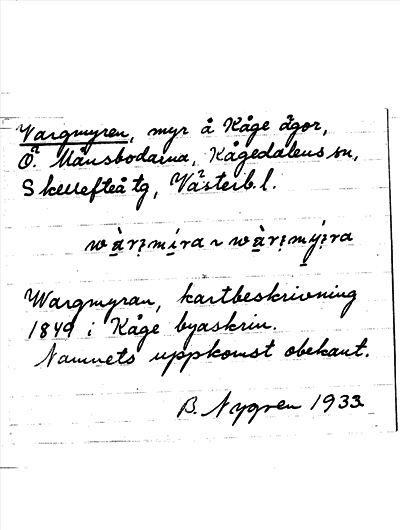 Vargmyren, myr å Kåge ägor,
Ö. Månsbodarna, Kågedalens sn,
Skellefteå tg, Västerb. l.
wàrımíra ~ wàrımýıra
Wargmyran, kartbeskrivning
1849 i Kåge byaskrin.
Namnets uppkomst obekant.
B. Nygren 1933